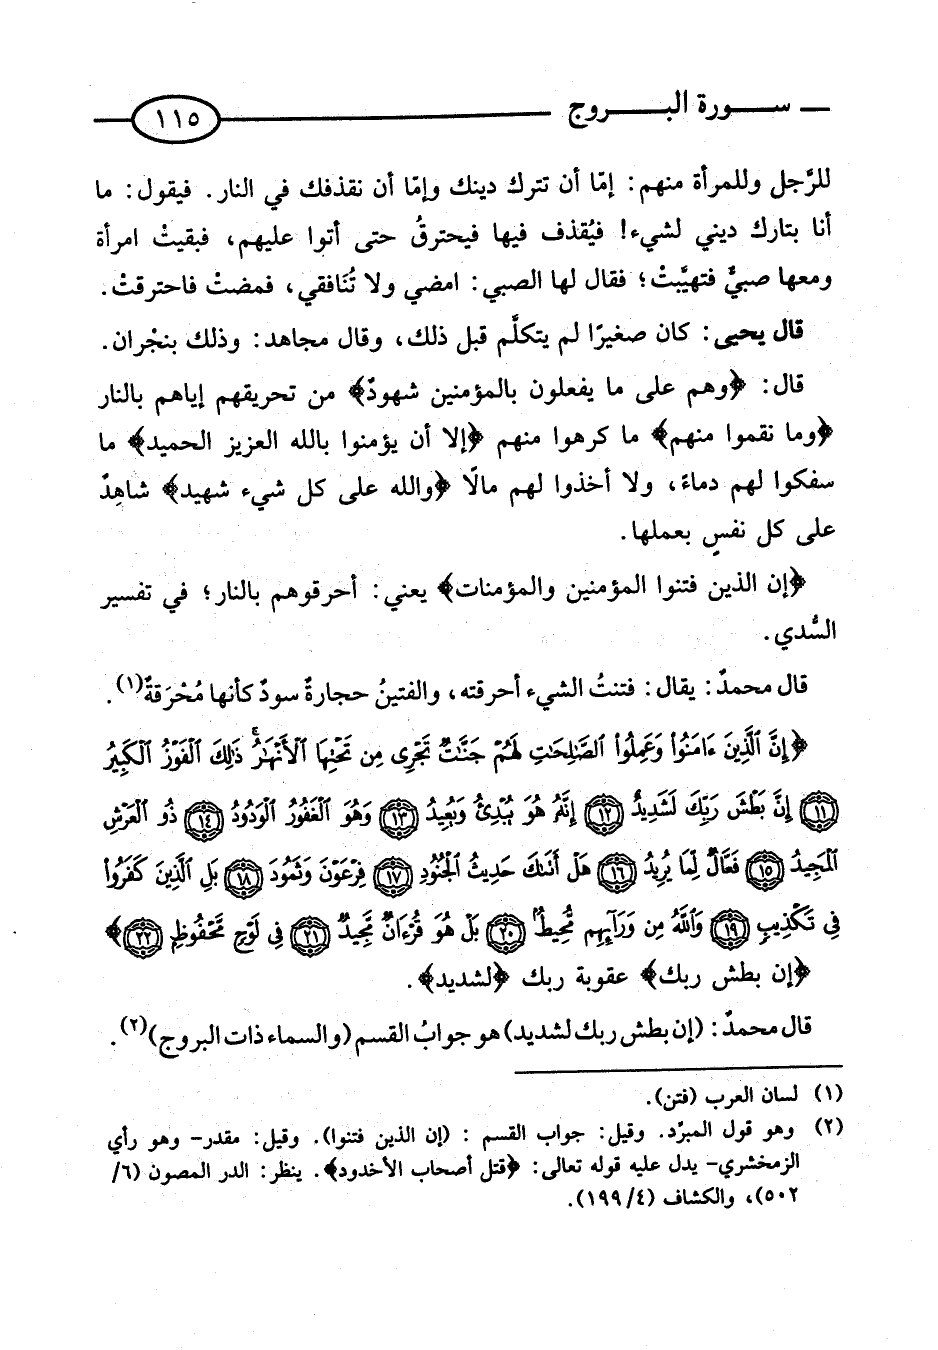 سورة البروج ١١٥
للرَّجل وللمرأة منهم: إمّا أن تترك دينك وإمّا أن نقذفك في النار. فيقول: ما
أنا بتارك ديني لشيء! فيُقذف فيها فيحترقُ حتى أتوا عليهم، فبقيتْ امرأة
ومعها صبيٌّ فتهيَّبتْ؛ فقال لها الصبي: امضي ولا تُنَافقي، فمضتْ فاحترقتْ.
قال يحيى: كان صغيرًا لم يتكلَّم قبل ذلك، وقال مجاهد: وذلك بنجْران.
قال: ﴿وهم على ما يفعلون بالمؤمنين شهودٌ﴾ من تحريقهم إياهم بالنار
﴿وما نقموا منهم﴾ ما كرهوا منهم ﴿إلا أن يؤمنوا بالله العزيز الحميد﴾ ما
سفكوا لهم دماءً، ولا أخذوا لهم مالًا ﴿والله على كل شيء شهيد﴾ شاهِدٌ
على كل نفسٍ بعملها.
﴿إن الذين فتنوا المؤمنين والمؤمنات﴾ يعني: أحرقوهم بالنار؛ في تفسير
السُّدي.
قال محمدٌ: يقال: فتنتُ الشيء أحرقته، والفتينُ حجارةٌ سودٌ كأنها مُحْرَقةٌ(١).
﴿إِنَّ ٱلَّذِينَ ءَامَنُوا۟ وَعَمِلُوا۟ ٱلصَّٰلِحَٰتِ لَهُمْ جَنَّٰتٌ تَجْرِى مِن تَحْتِهَا ٱلْأَنْهَٰرُ ۚ ذَٰلِكَ ٱلْفَوْزُ ٱلْكَبِيرُ
١١ إِنَّ بَطْشَ رَبِّكَ لَشَدِيدٌ ١٢ إِنَّهُۥ هُوَ يُبْدِئُ وَيُعِيدُ ١٣ وَهُوَ ٱلْغَفُورُ ٱلْوَدُودُ ١٤ ذُو ٱلْعَرْشِ
ٱلْمَجِيدُ ١٥ فَعَّالٌ لِّمَا يُرِيدُ ١٦ هَلْ أَتَىٰكَ حَدِيثُ ٱلْجُنُودِ ١٧ فِرْعَوْنَ وَثَمُودَ ١٨ بَلِ ٱلَّذِينَ كَفَرُوا۟
فِى تَكْذِيبٍ ١٩ وَٱللَّهُ مِن وَرَآئِهِم مُّحِيطٌۢ ٢٠ بَلْ هُوَ قُرْءَانٌ مَّجِيدٌ ٢١ فِى لَوْحٍ مَّحْفُوظٍۭ ٢٢﴾
﴿إن بطش ربك﴾ عقوبة ربك ﴿لشديد﴾.
قال محمدٌ: (إن بطش ربك لشديد) هو جوابُ القسم (والسماء ذات البروج)(٢).
(١) لسان العرب (فتن).
(٢) وهو قول المبرّد. وقيل: جواب القسم : (إن الذين فتنوا). وقيل: مقدر- وهو رأي
الزمخشري- يدل عليه قوله تعالى: ﴿قتل أصحاب الأخدود﴾. ينظر: الدر المصون (٦/
٥٠٢)، والكشاف (٤/١٩٩).